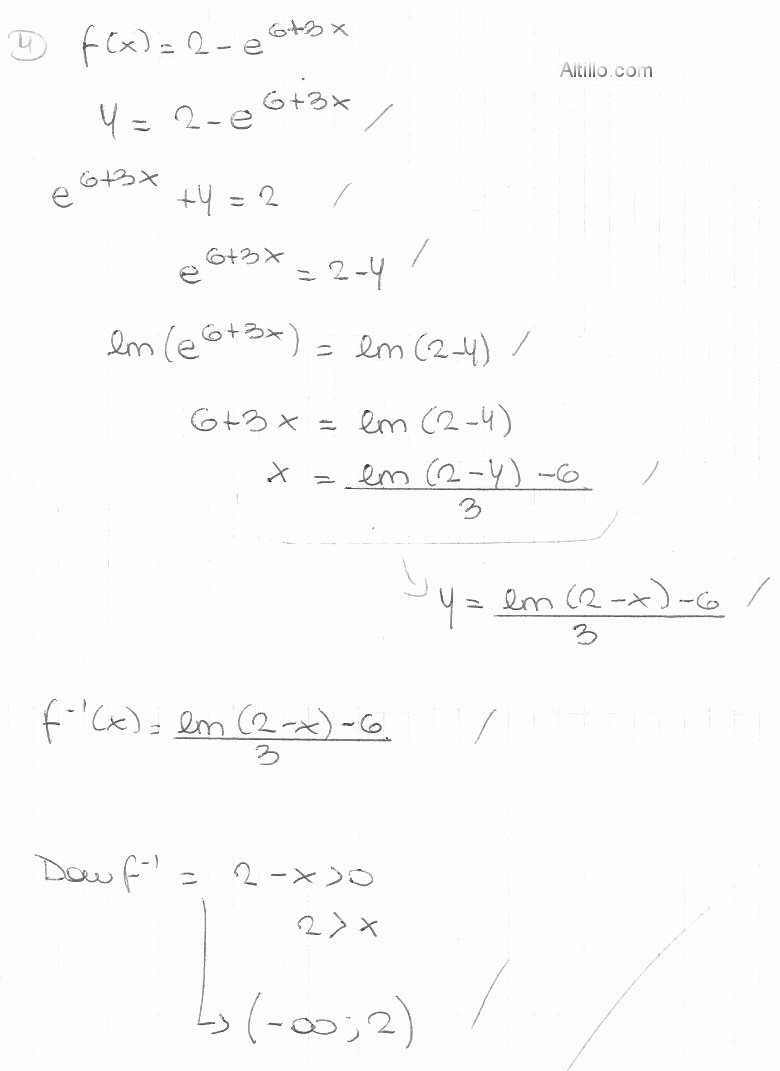 4) f(x) = 2 - e^{6+3x}
Altillo.com
y = 2 - e^{6+3x} /
e^{6+3x} + y = 2 /
e^{6+3x} = 2 - y /
ln(e^{6+3x}) = ln(2-y) /
6+3x = ln(2-y)
x = \frac{ln(2-y)-6}{3} /
↳ y = \frac{ln(2-x)-6}{3} /
f^{-1}(x) = \frac{ln(2-x)-6}{3} /
Dom f^{-1} = 2 - x > 0
2 > x
↳ (-∞; 2) /